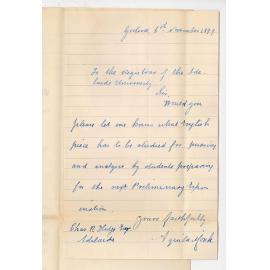 6th November 1889
To the Registrar of the Ade-
laide University
Sir,
Would you
please let me know what English
piece has to be studied for parsing
and analysis by students preparing
for the next Preliminary Exam-
ination.
yours faithfully
Chas R. Hodge Esq
Adelaide